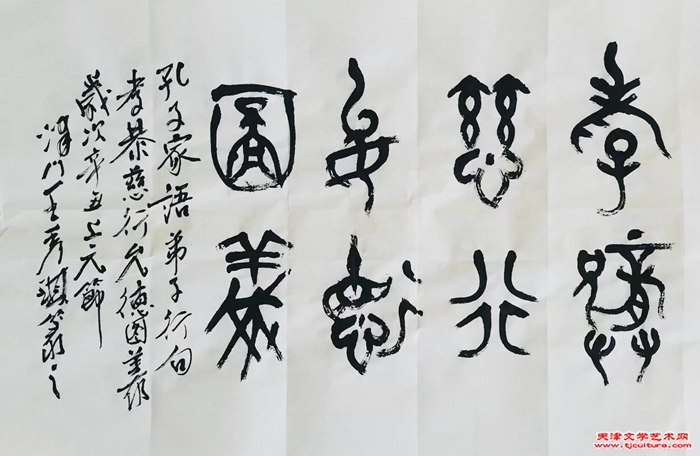 孝恭
慈行
允德
圖義
孔子家語弟子行句
孝恭慈行允德圖義
歲次辛丑上元節
津門
天津文学艺术网
www.tjculture.com